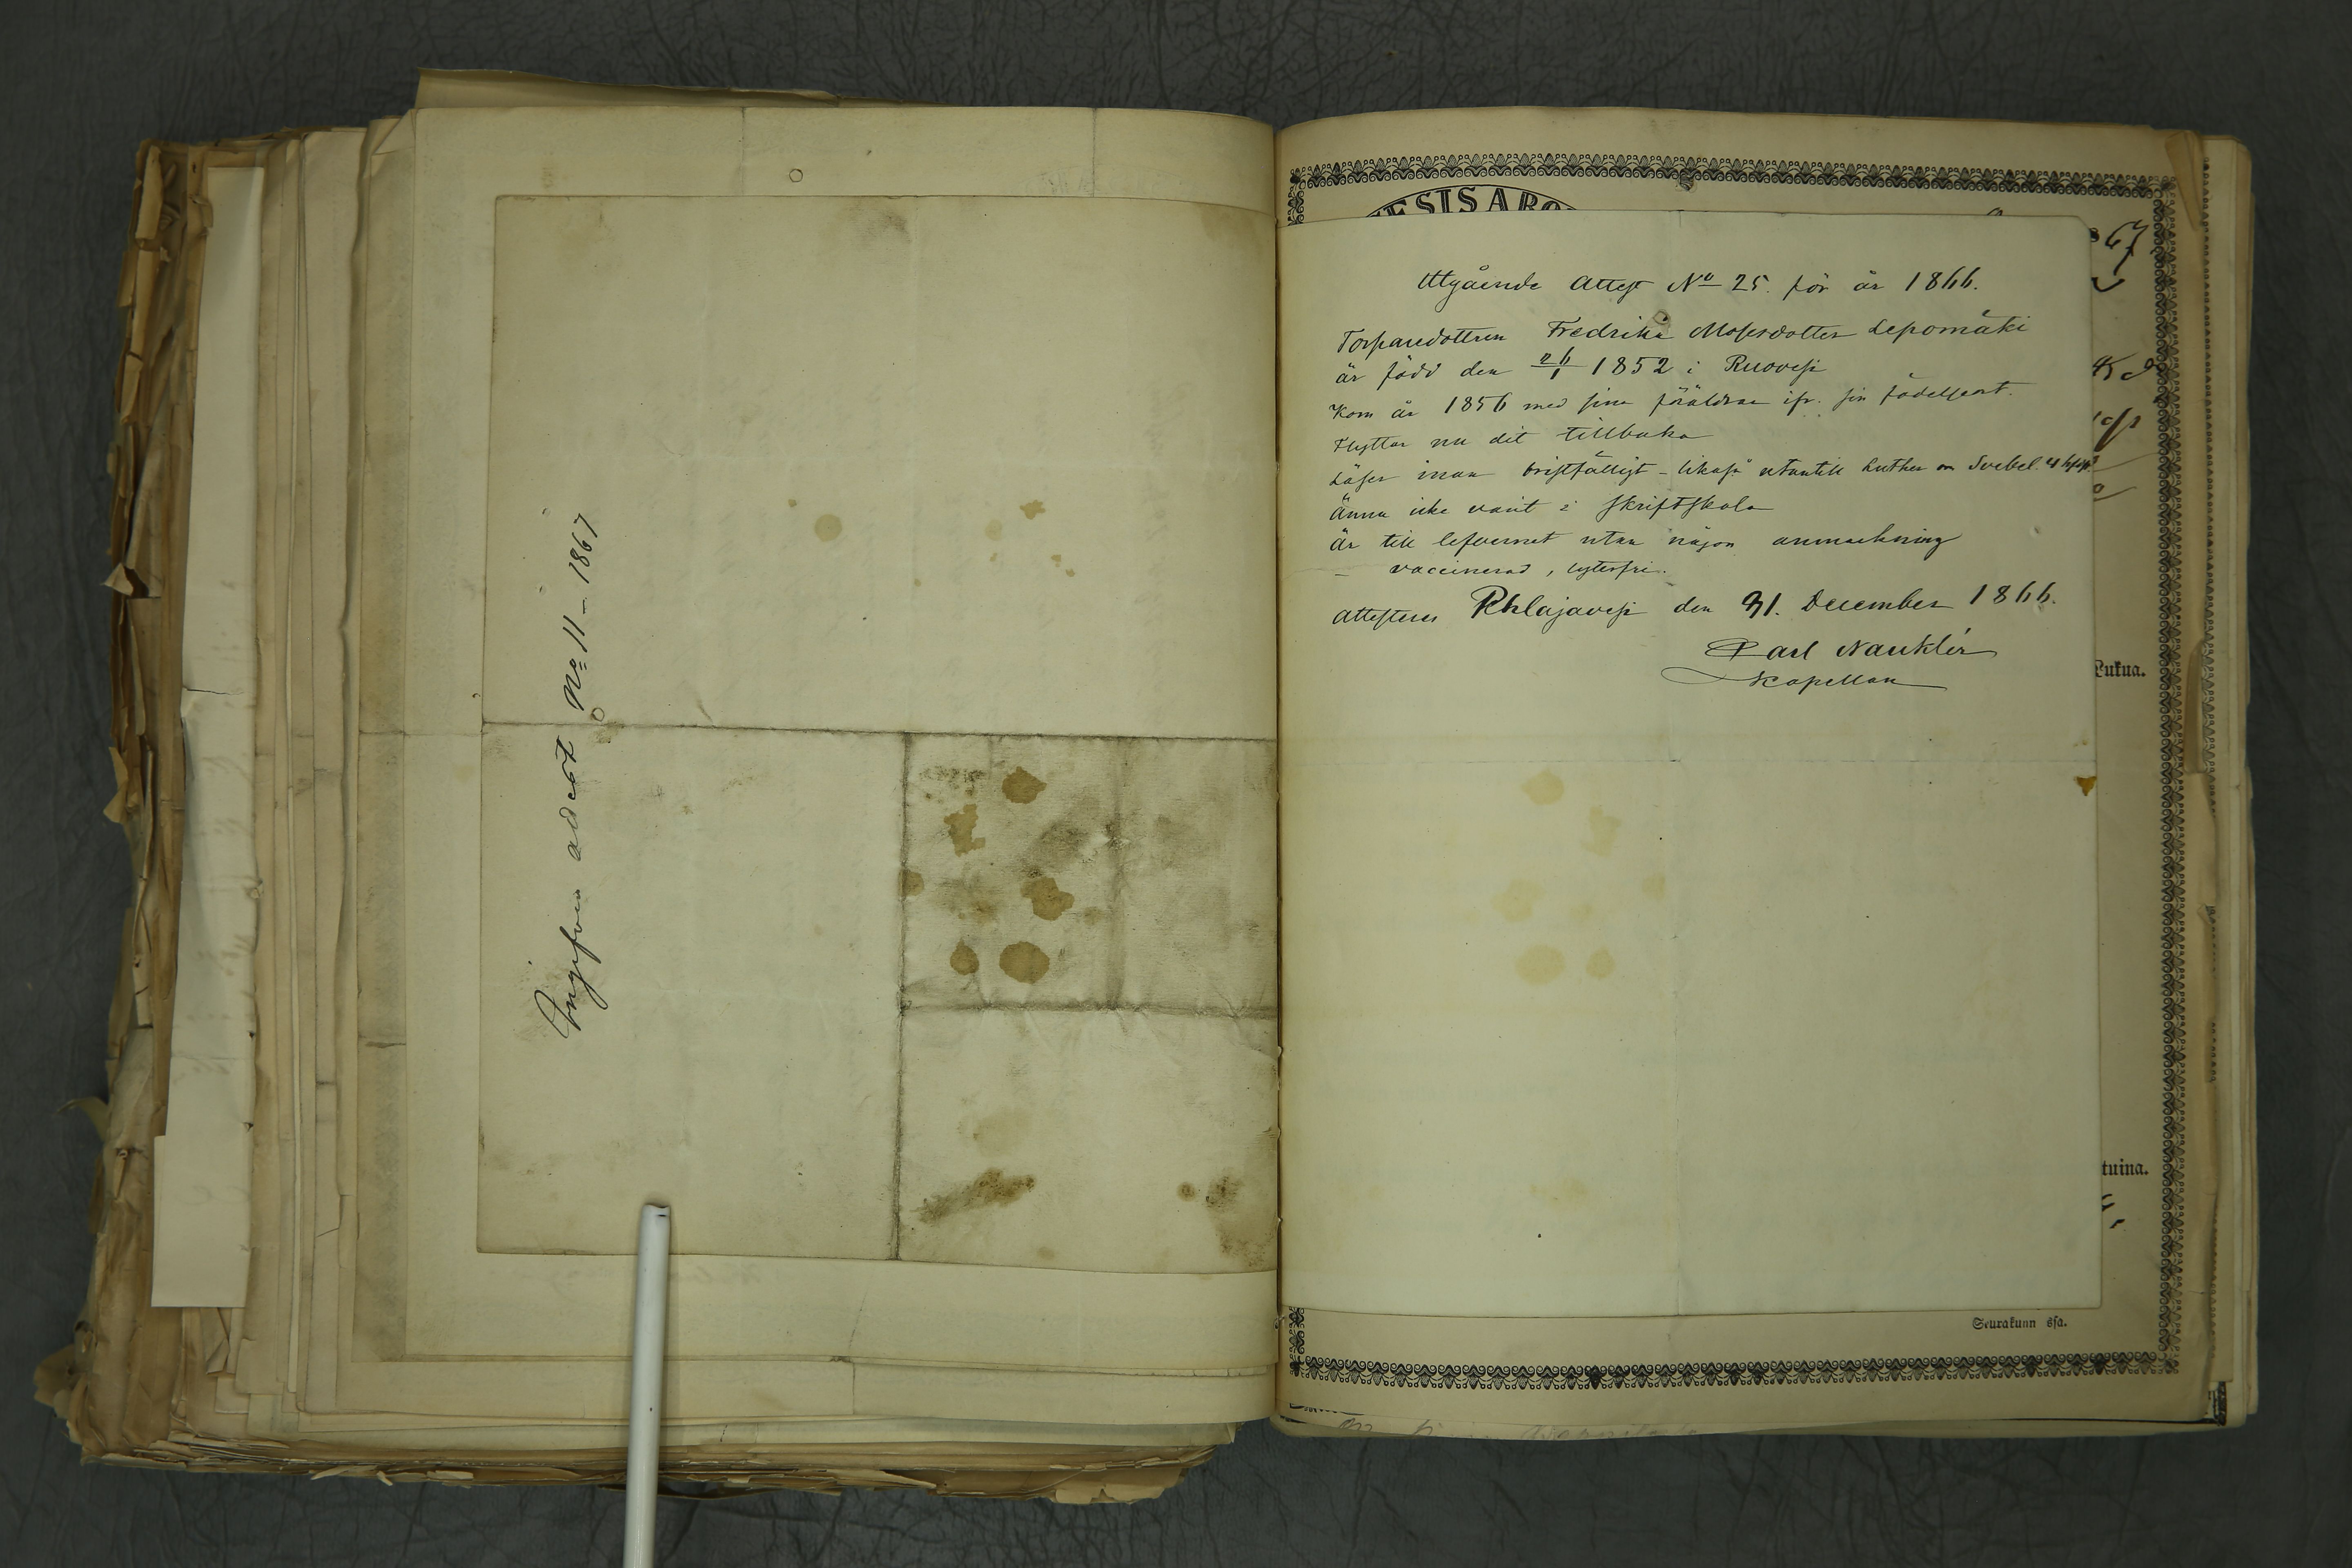 Ingifven adtest No 11 - 1867
ESISARO
67
Utgående Attest No 25. för år 1866.
Torparedottren Fredrika Mosesdotter Lepomäki
är född den 26/1 1852 i Ruovesi
Kom år 1856 med sina föräldrar ifr. sin födelseort.
Flyttar nu dit tillbaka
Läser innan bristfälligt - likaså utantill Luther o Svebel.
Ännu icke varit i skriftskola
är till lefvernet utan någon anmärkning
- vaccinerad, lytesfri.
Attesteras Pihlajavesi den 31. December 1866.
Carl Nauklér
Kapellan
Lukua.
tuina.
Seurakunn ssa.